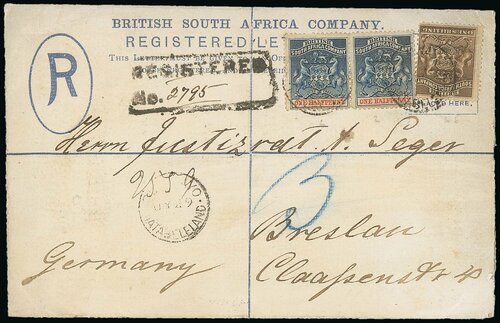 BRITISH SOUTH AFRICA COMPANY.
REGISTERED LE
THIS LETTER MUST BE GIVEN
R
REGISTERED
No. 2795
BRITISH
SOUTH AFRICA COMPANY
ONE HALFPENNY
BRITISH
SOUTH AFRICA COMPANY
ONE HALFPENNY
PLACED HERE.
Herrn Justizrat A. Seger
MATABELELAND.
3
Breslau
Germany
Claassenstr